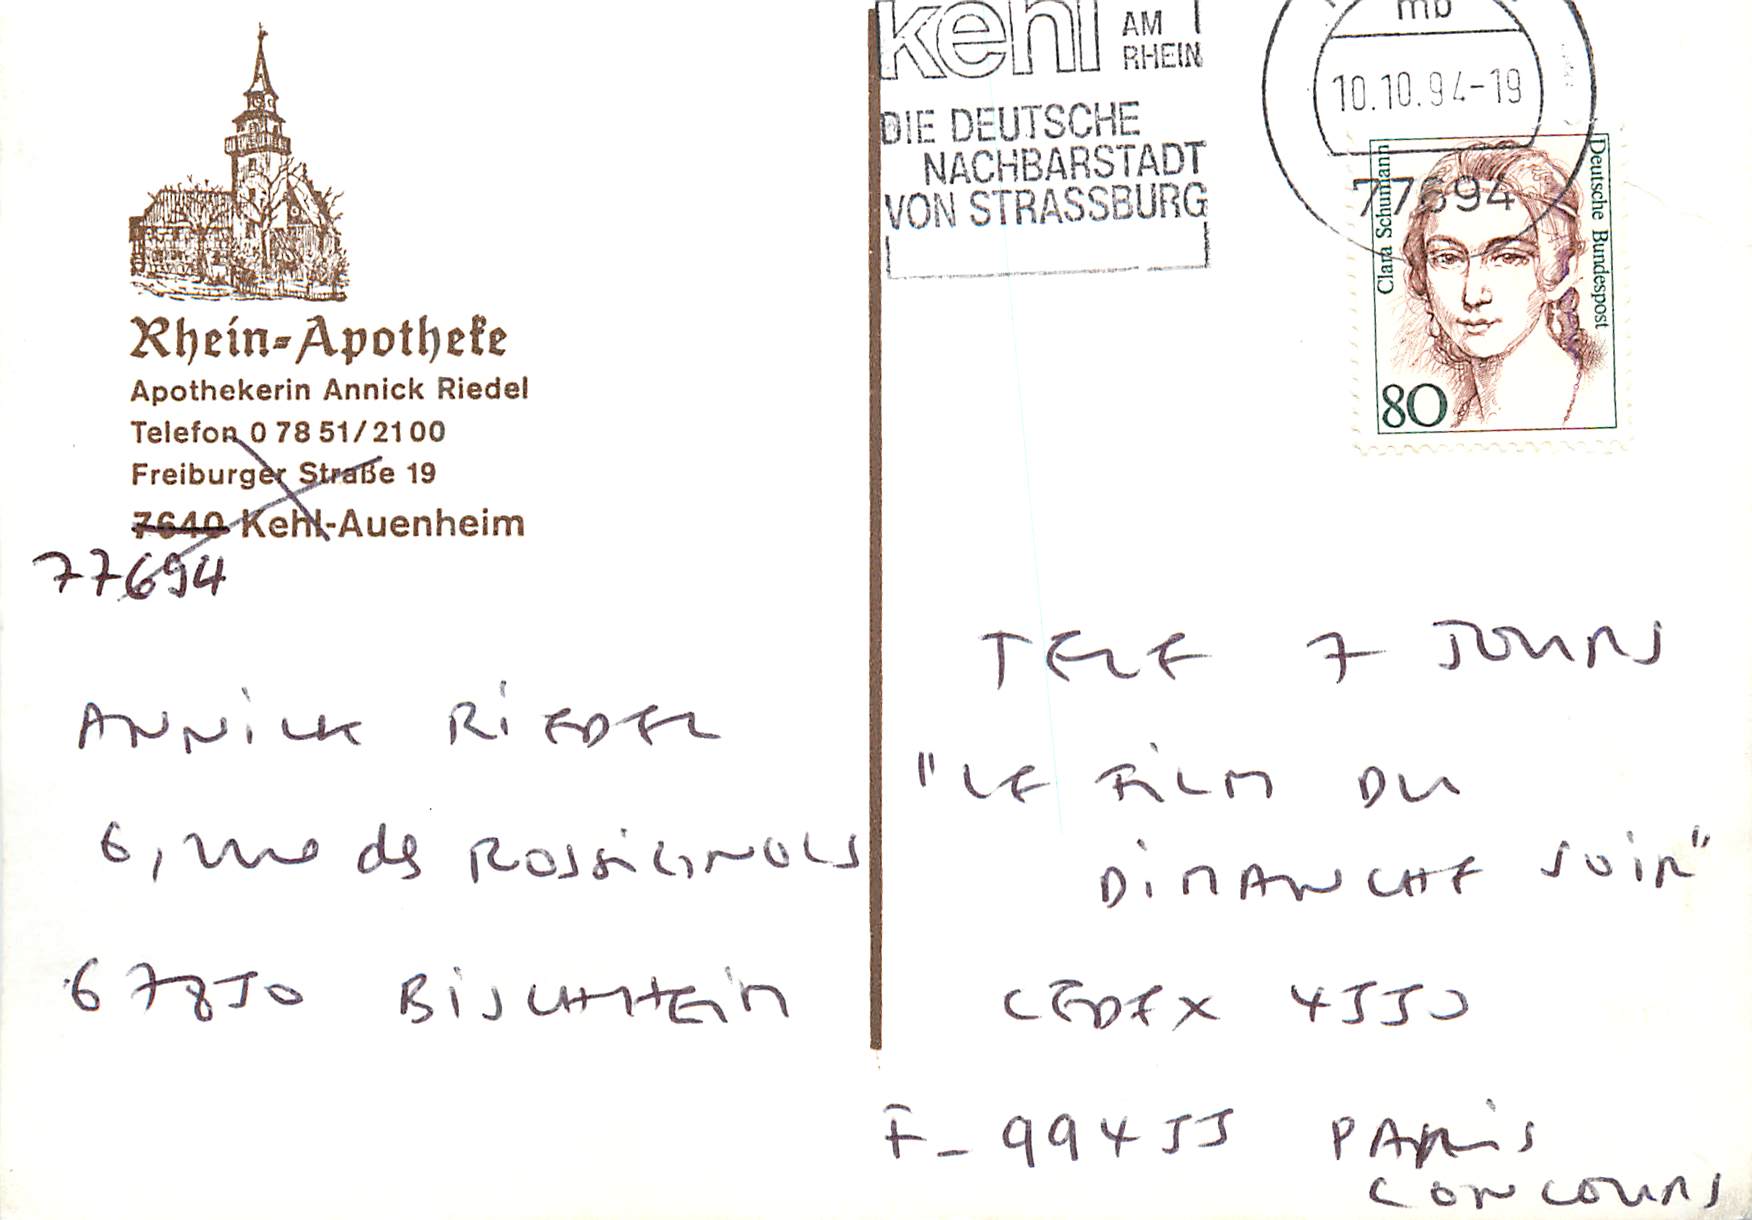 Rhein-Apotheke
Apothekerin Annick Riedel
Telefon 0 78 51/21 00
Freiburger Straße 19
7640 Kehl-Auenheim
77694
ANNICK RIEDEL
6, rue des ROSSIGNOLS
67850 BISCHHEIM
kehl AM
RHEIN
DIE DEUTSCHE
NACHBARSTADT
VON STRASSBURG
mb
10.10.94-19
77694
Clara Schumann
Deutsche Bundespost
80
TELE 7 JOURS
"LE FILM DU
DIMANCHE SOIR"
CEDEX 4550
F-99455 PARIS
CONCOURS